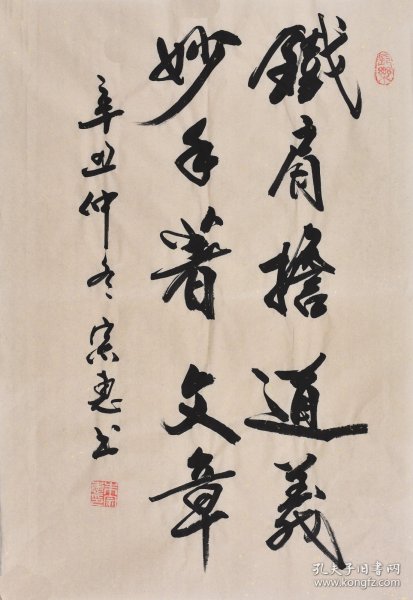 鐵肩擔道義
妙手著文章
辛丑仲冬宗惠书
孔夫子旧书网
www.kongfz.com